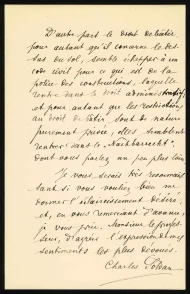 D'autre part le droit de bâtir
pour autant qu'il concerne le des-
sus du sol, semble échapper à un
code civil pour ce qui est de la
police des constructions, laquelle
rentre dans le droit administratif,
et pour autant que les restrictions
au droit de bâtir, sont de nature
purement privée, elles semblent
rentrer dans le "Nachbarrecht",
dont vous parlez un peu plus loin.
Je vous serais très reconnais-
sant si vous vouliez bien me
donner l'éclaircissement désiré,
et, en vous remerciant d'avance,
je vous prie, Monsieur le profes-
seur, d'agréer l'expression de mes
sentiments les plus dévoués.
Charles